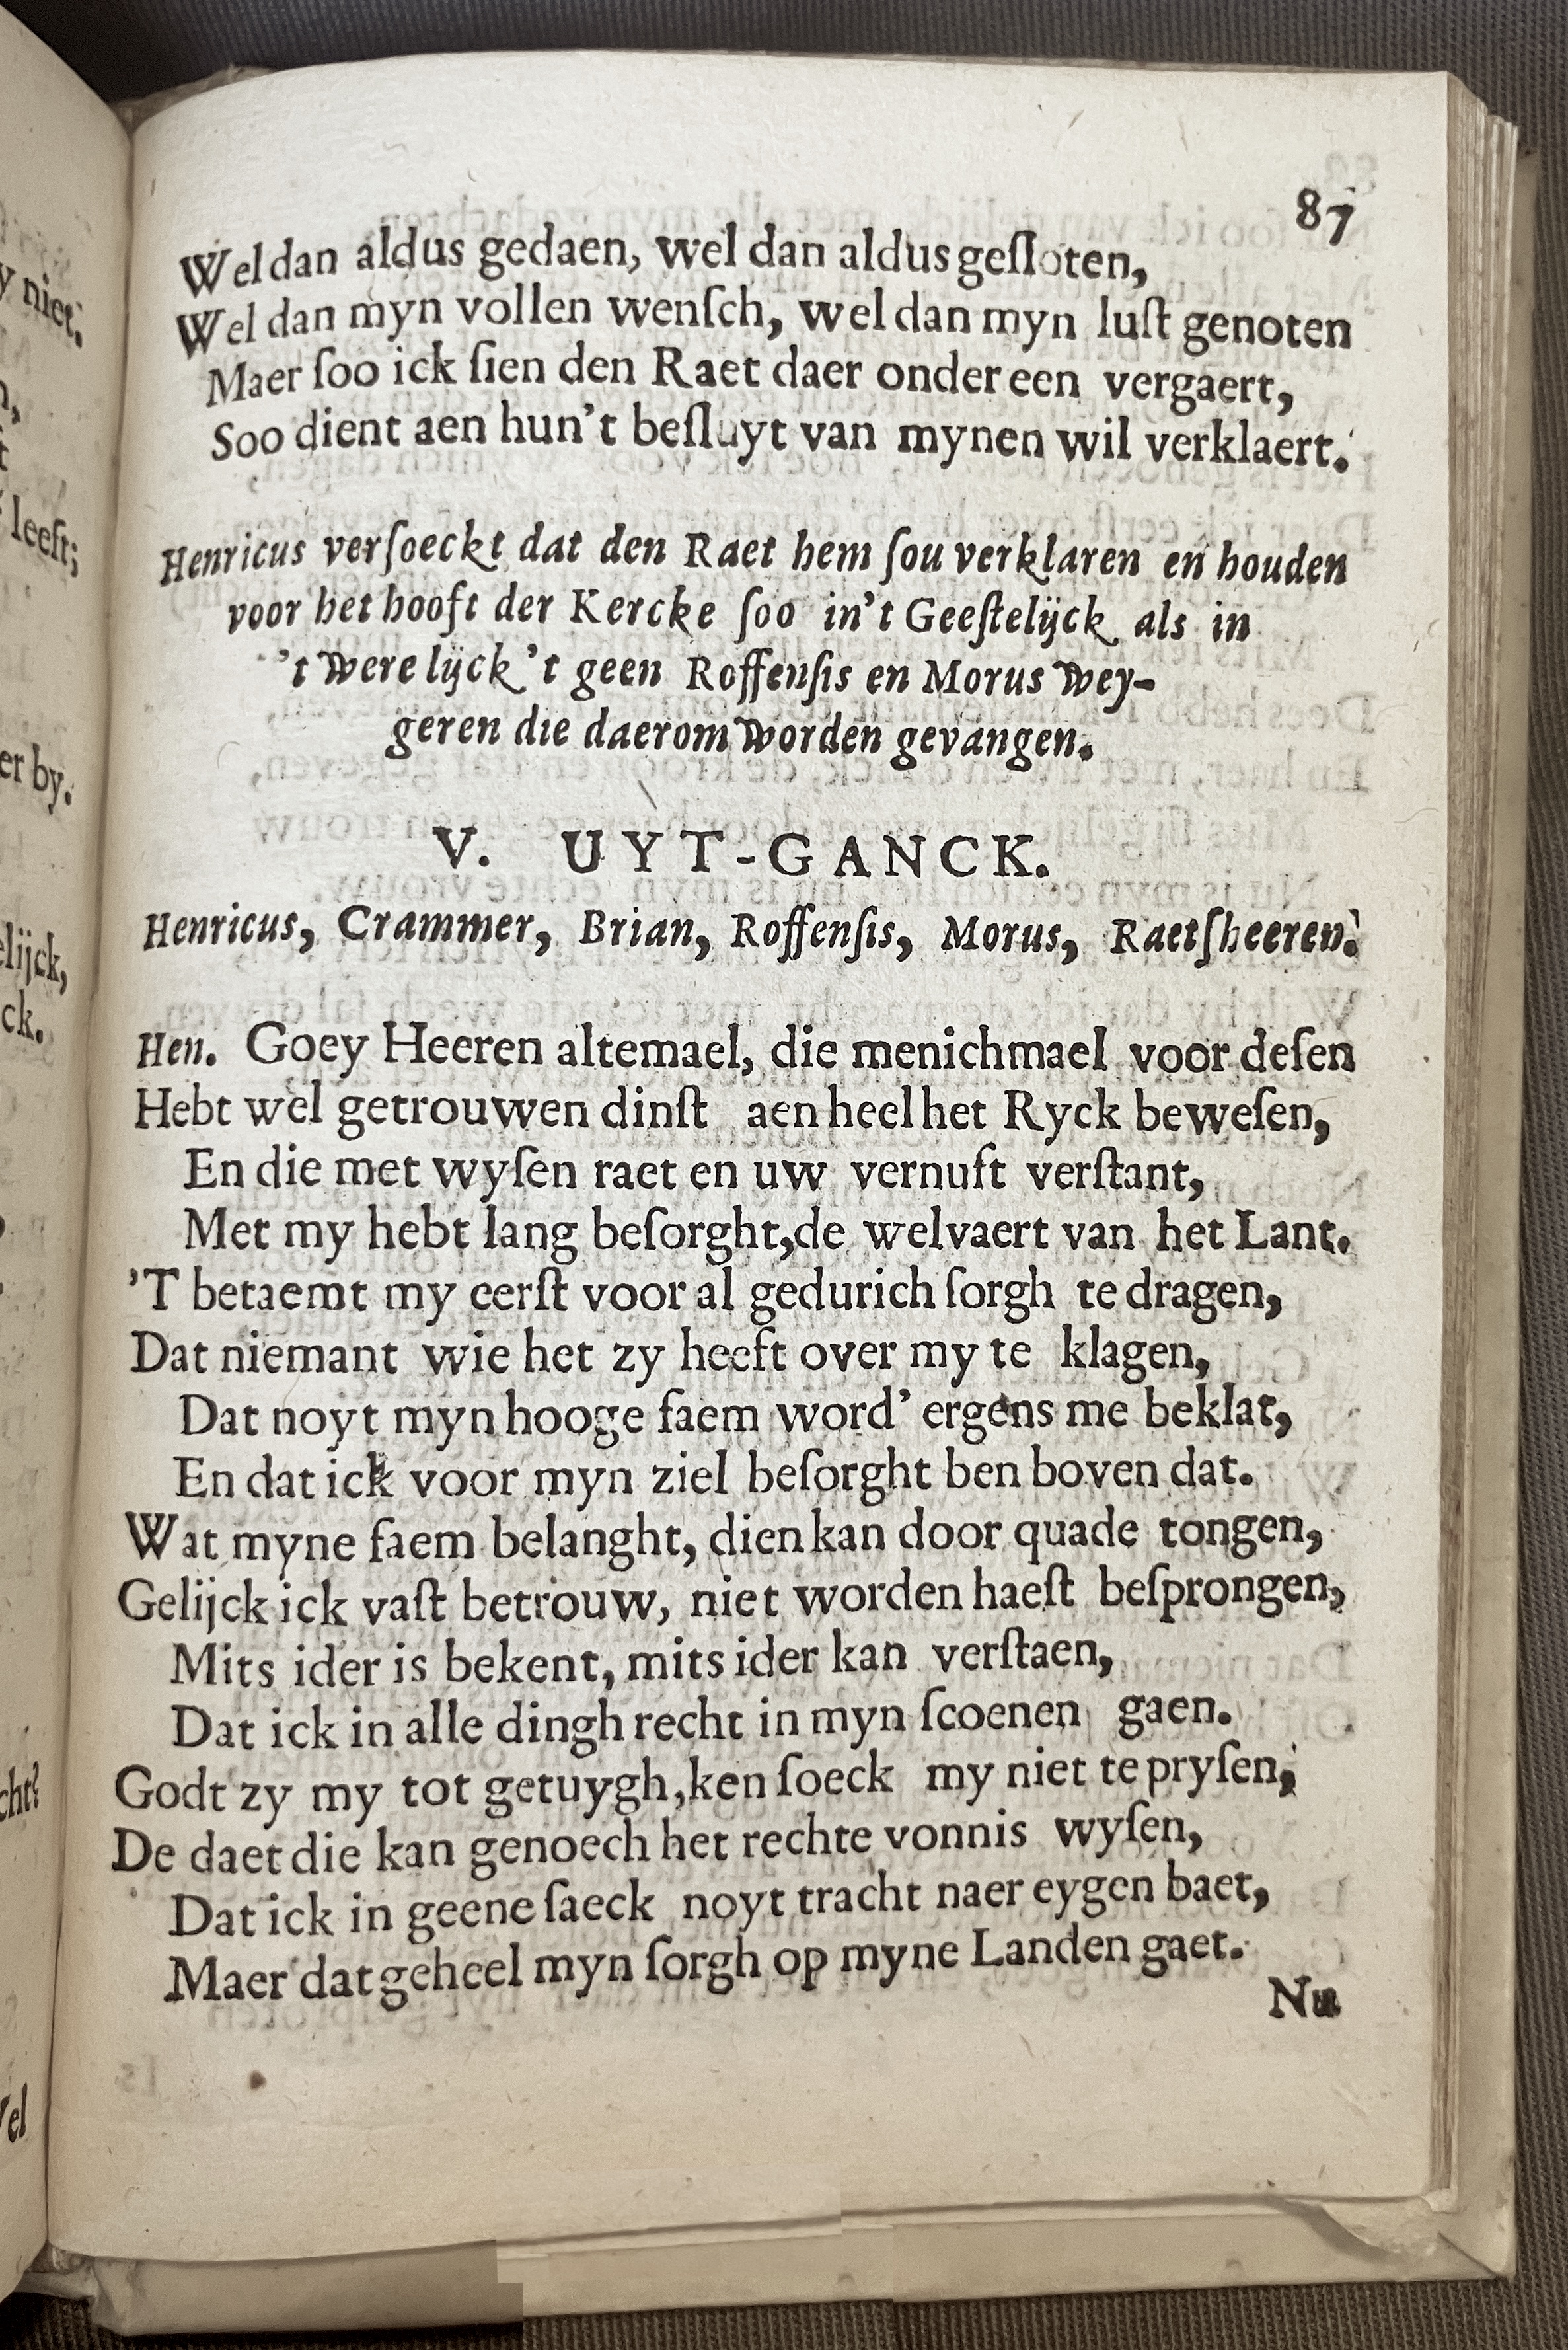 y niet.
leeft;
er by.
elijck,
ck.
cht?
Vel
87
Wel dan aldus gedaen, wel dan aldus geſloten,
Wel dan myn vollen wenſch, wel dan myn luſt genoten
Maer ſoo ick ſien den Raet daer onder een vergaert,
Soo dient aen hun't beſluyt van mynen wil verklaert.
Henricus verſoeckt dat den Raet hem ſou verklaren en houden
voor het hooft der Kercke ſoo in't Geeſtelijck als in
't Werelijck 't geen Roffenſis en Morus Wey-
geren die daerom Worden gevangen.
V. UYT-GANCK.
Henricus, Crammer, Brian, Roffenſis, Morus, Raetſheeren.
Hen. Goey Heeren altemael, die menichmael voor deſen
Hebt wel getrouwen dinſt aen heel het Ryck beweſen,
En die met wyſen raet en uw vernuft verſtant,
Met my hebt lang beſorght,de welvaert van het Lant.
'T betaemt my eerſt voor al gedurich ſorgh te dragen,
Dat niemant wie het zy heeft over my te klagen,
Dat noyt myn hooge faem word' ergens me beklat,
En dat ick voor myn ziel beſorght ben boven dat.
Wat myne faem belanght, dien kan door quade tongen,
Gelijck ick vaſt betrouw, niet worden haeſt beſprongen,
Mits ider is bekent, mits ider kan verſtaen,
Dat ick in alle dingh recht in myn ſcoenen gaen.
Godt zy my tot getuygh,ken ſoeck my niet te pryſen;
De daet die kan genoech het rechte vonnis wyſen,
Dat ick in geene ſaeck noyt tracht naer eygen baet,
Maer dat geheel myn ſorgh op myne Landen gaet.
Nu